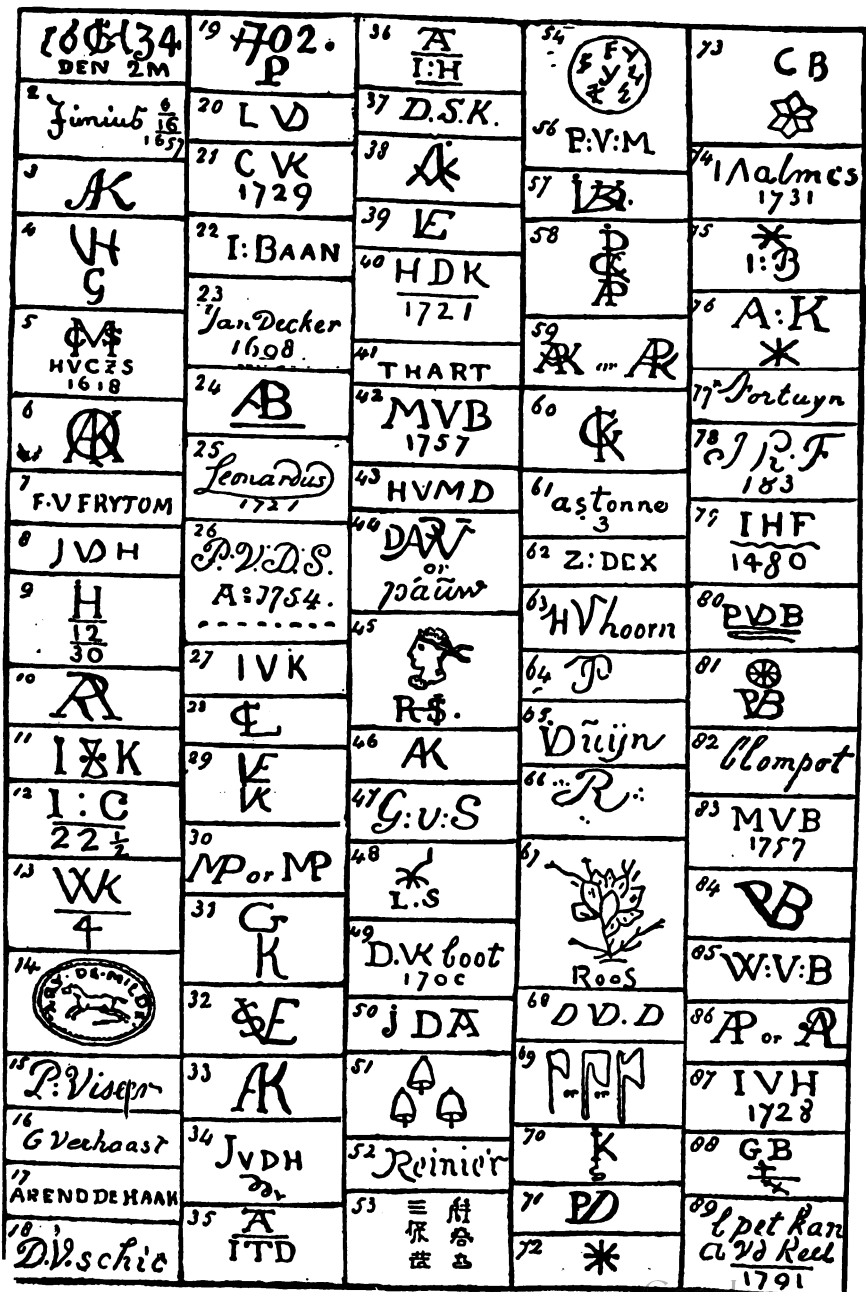 16 GH 34
DEN 2M
2
Junius 6
16
1657
3
AK
4
VH
G
5
HVCZS
1618
6
7
F.V FRYTOM
8
JVDH
9
H
12
30
10
AR
11
I K
12
I : C
22 1/2
13
WK
4
14
15
P: Viseer
16
G Verhaast
17
AREND DE HAAK
18
D.V. schie
19
1702.
P
20
L VD
21
C VK
1729
22
I: BAAN
23
Jan Decker
1698
24
AB
25
Leonardus
1721
26
P.V.D.S.
A: 1754.
27
IVK
28
29
VE
VK
30
MP or MP
31
G
K
32
33
AK
34
JVDH
35
A
ITD
36
A
I:H
37
D.S.K.
38
AK
39
VE
40
HDK
1721
41
THART
42
MVB
1757
43
HVMD
44
or
pauw
45
R.S.
46
AK
47
G:v:S
48
L.S
49
D.VK boot
170c
50
j DA
51
52
Reinier
53
54
56
P:V:M
57
58
D
CK
AP
59
AK or APK
60
61
astonne
3
62
Z:DEX
63
HVhoorn
64
P
65
V Duijn
66
R
67
RooS
68
D VD. D
69
or or
70
K
71
PD
72
73
C B
74
1731
75
I:B
76
A:K
77
Fortuyn
78
183
79
IHF
1480
80
PVDB
81
PVB
82
Clompot
83
MVB
1757
84
PVB
85
W:V:B
86
AP or
87
IVH
1728
88
GB
89
l pet kan
a vd Keel
1791